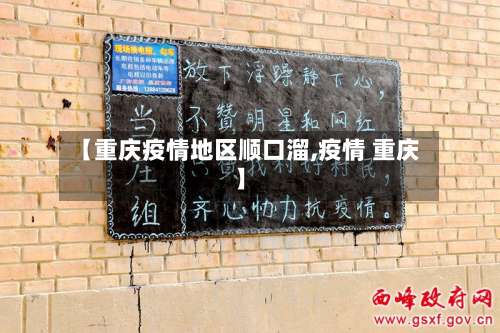 现场换电瓶、勾车
放下浮躁静下心，
不赞明星和网红，
只赞我村好村民，
齐心协力抗疫情。
当
庄
组
【重庆疫情地区顺口溜,疫情 重庆
】
西峰政府网
www.gsxf.gov.cn